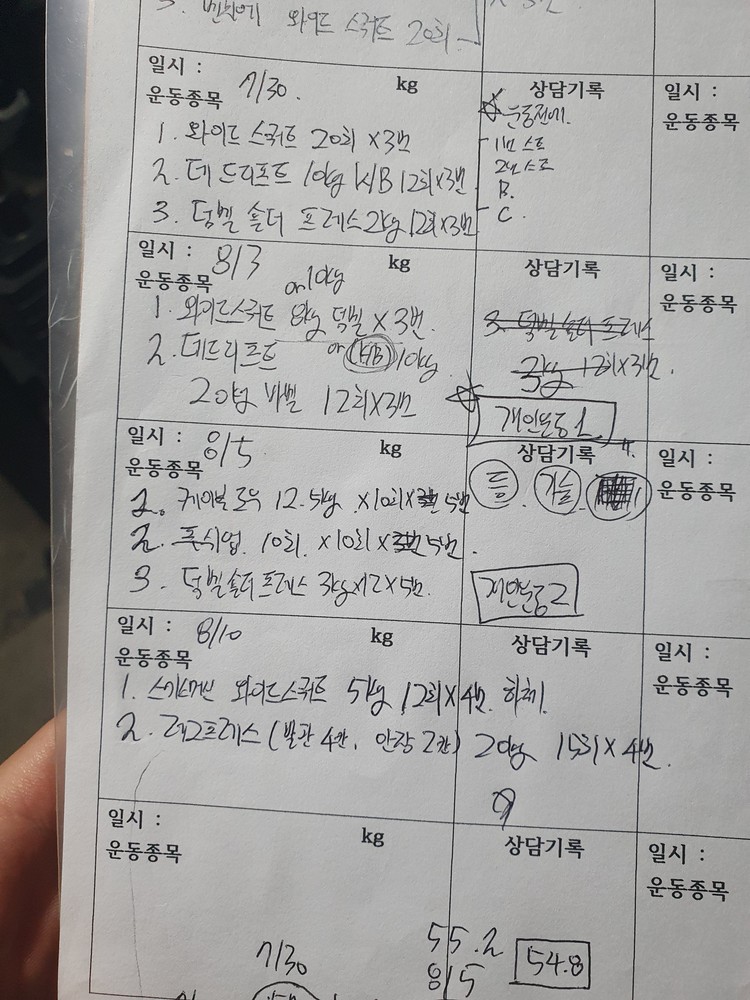 3. 와이드 스쿼트 20회
일시 : 7/30. kg 상담기록 일시 :
운동종목 운동전에. 운동종목
1. 와이드 스쿼트 20회 ×3번 1번 스트
2. 데드리프트 10kg K/B 12회×3번 2번 스트
B.
3. 덤벨 숄더 프레스 2kg 12회×3번 C.
일시 : 8/3 kg 상담기록 일시 :
운동종목 or 10kg 운동종목
1. 와이드스쿼트 8kg 덤벨 ×3번. 3. 덤벨 숄더 프레스
2. 데드리프트 or (K/B) 10kg. 3kg 12회×3번.
20kg 바벨 12회×3번 개인운동1
일시 : 8/5 kg 상담기록 일시 :
운동종목 등. 가슴. 운동종목
1. 케이블 로우 12.5kg ×10회× 5번
2. 푸쉬업. 10회. ×10회× 5번.
3. 덤벨숄더프레스 3kg×12×5번. 개인운동2
일시 : 8/10 kg 상담기록 일시 :
운동종목 운동종목
1. 스미스머신 와이드스쿼트 5kg 12회×4번. 하체.
2. 레그프레스 (발판 4칸, 안장 2칸) 20kg 15회×4번.
일시 : kg 상담기록 일시 :
운동종목 운동종목
7/30 55.2 54.8
8/5